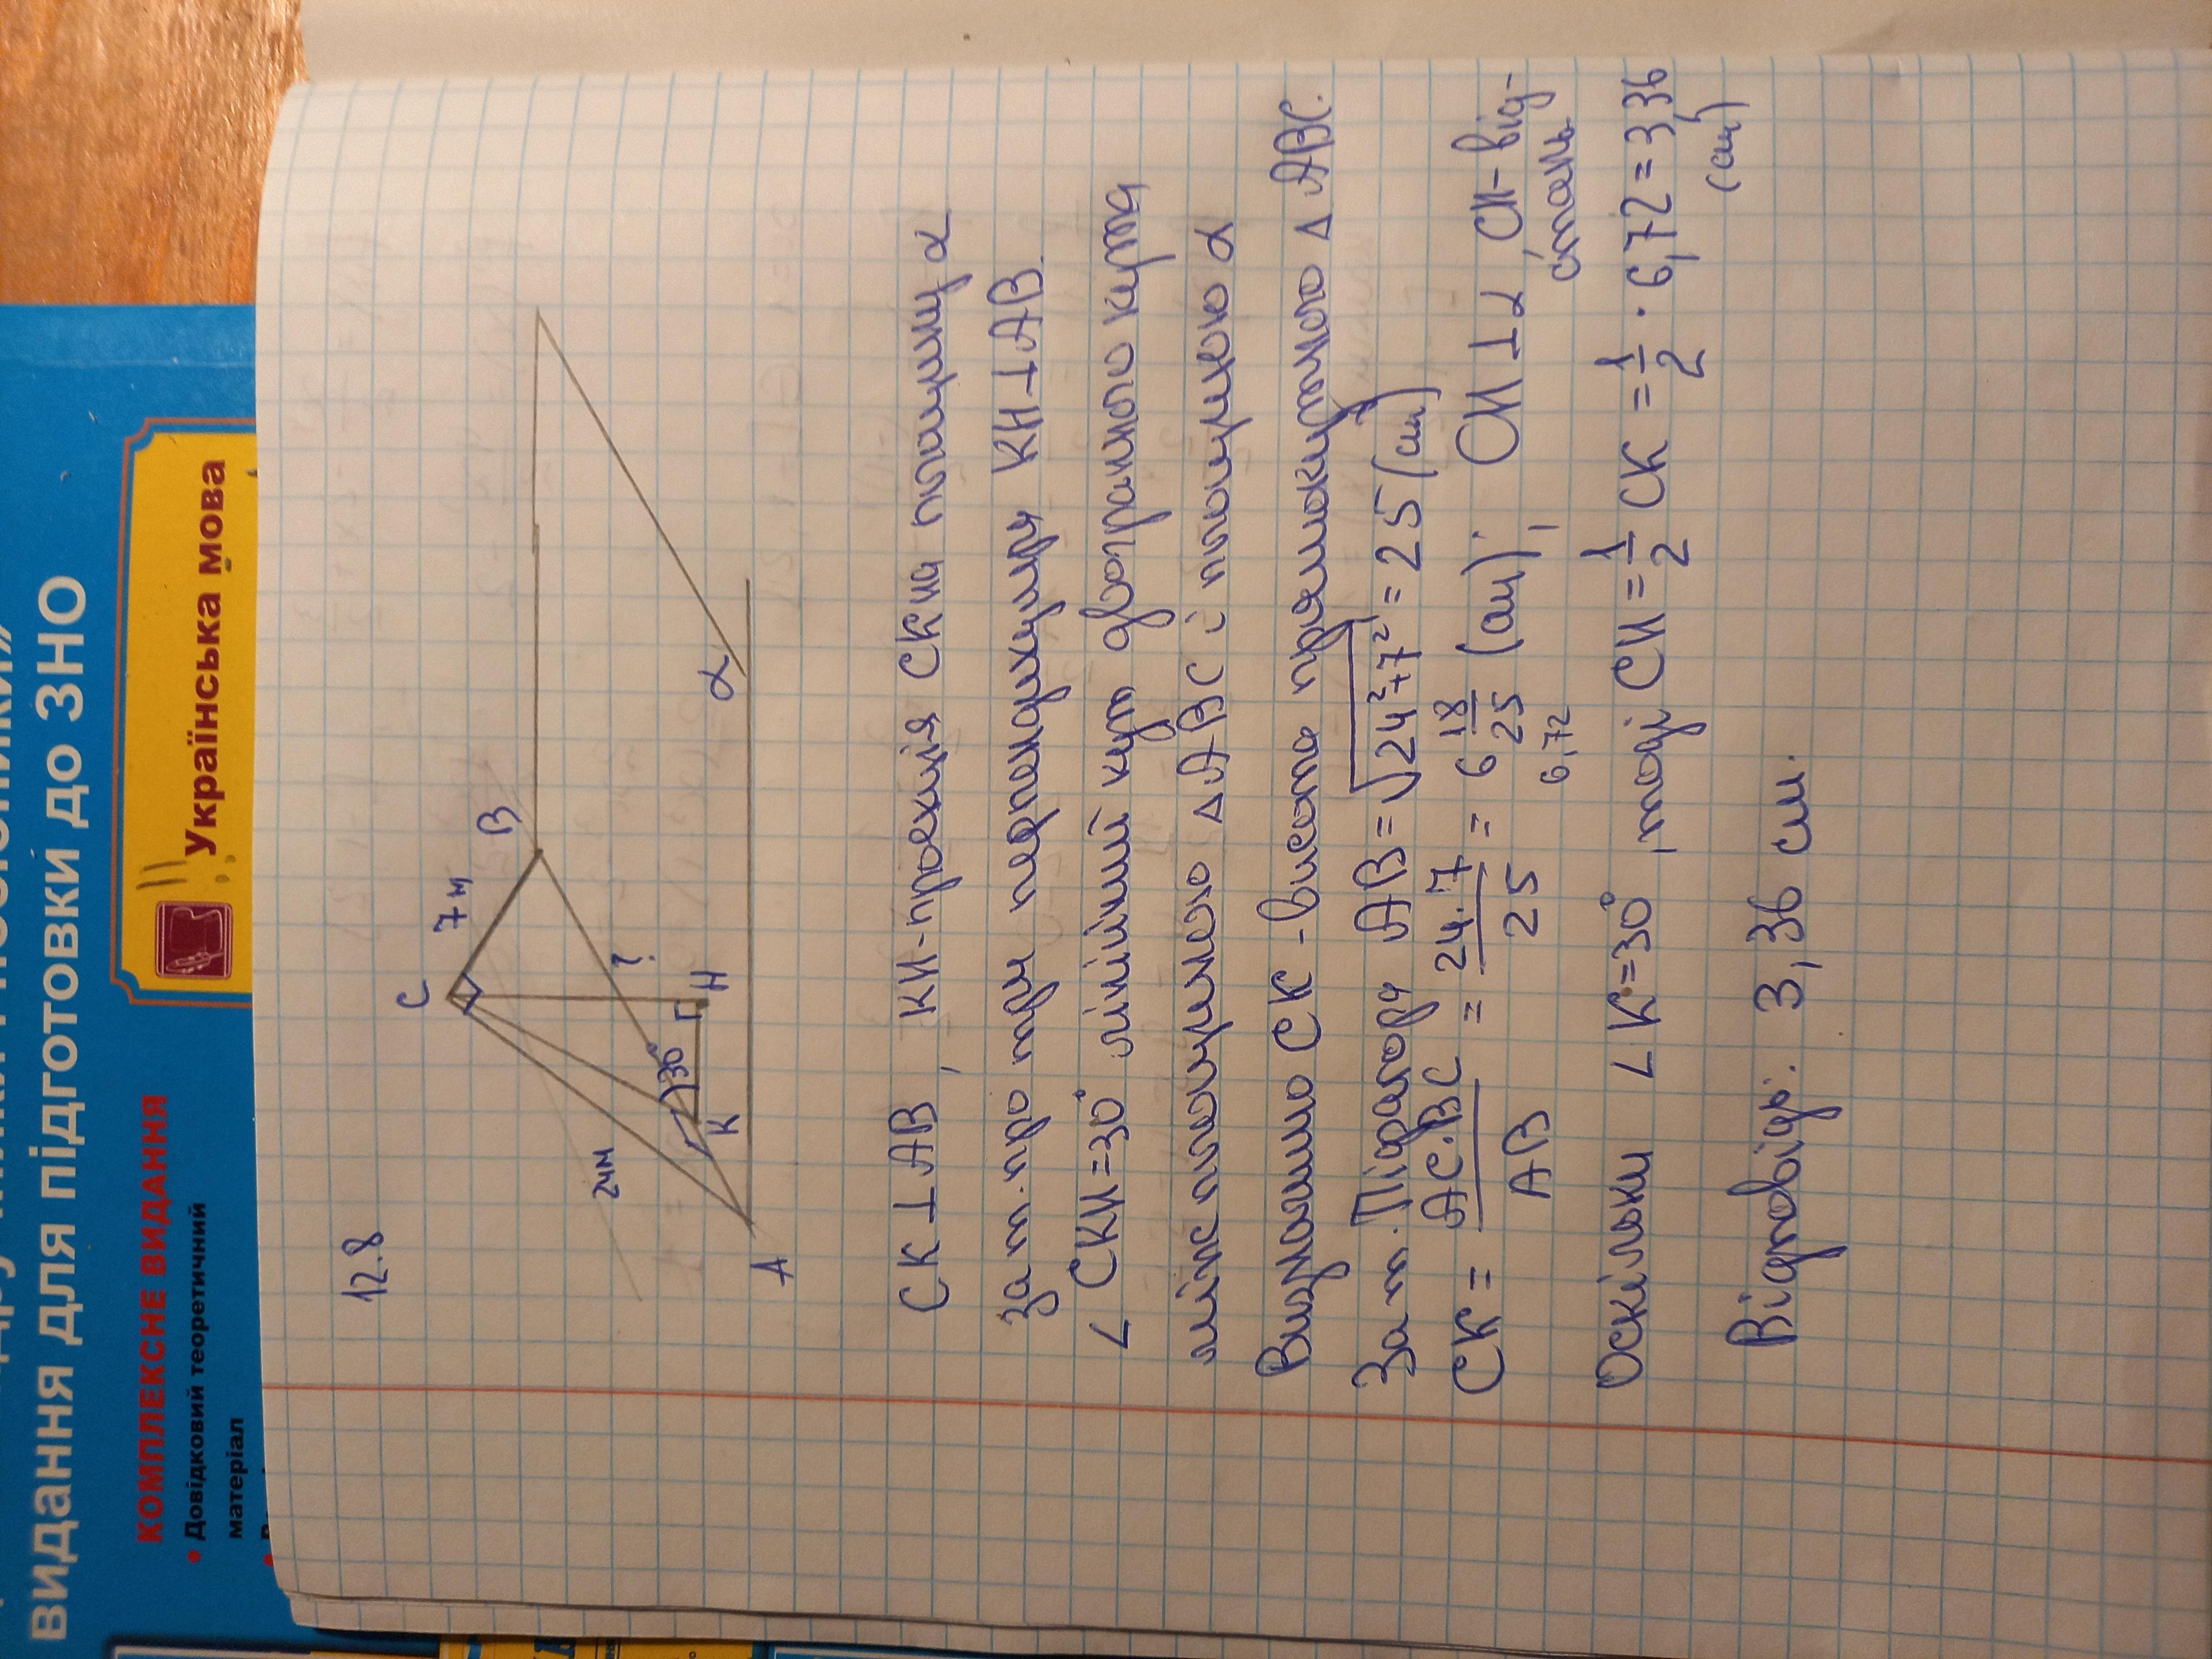 видання для підготовки до ЗНО
КОМПЛЕКСНЕ ВИДАННЯ
• Довідковий теоретичний
матеріал
Українська мова
12.8
C
7м
B
24м
?
30°
K
H
A
α
CK ⊥ AB, KH - проекція CK на площину α
За т. про три перпендикуляри KH ⊥ AB.
∠ CKH = 30° лінійний кут двогранного кута
між площиною △ ABC і площиною α
Визначимо CK - висота прямокутного △ ABC.
За т. Піфагора AB = √24²+7² = 25 (см)
CK = AC·BC / AB = 24·7 / 25 = 6 18/25 (см); CH ⊥ α CH - від-
6,72
стань
Оскільки ∠K=30°, тоді CH = 1/2 CK = 1/2 · 6,72 = 336
(см)
Відповідь: 3,36 см.